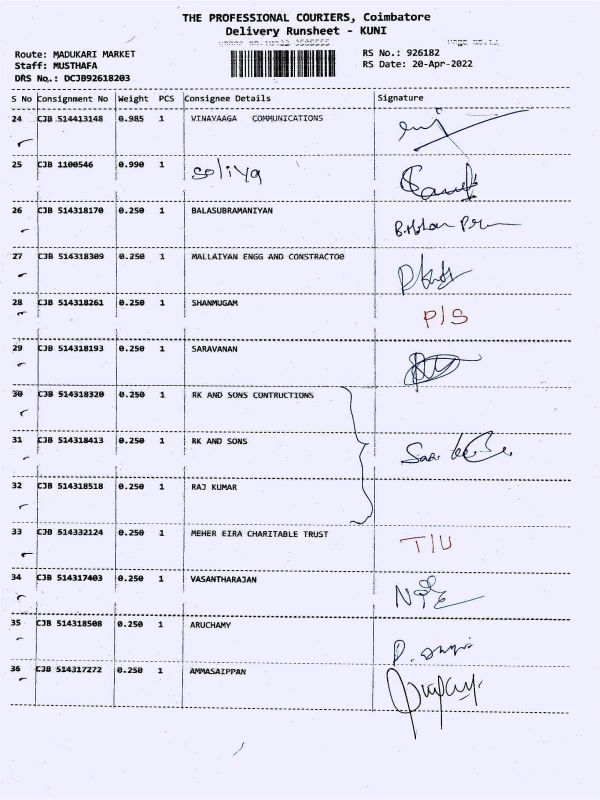 THE PROFESSIONAL COURIERS, Coimbatore
Delivery Runsheet - KUNI
Route: MADUKARI MARKET
Staff: MUSTHAFA
DRS No.: DCJB92618203
RS No.: 926182
RS Date: 20-Apr-2022
S No Consignment No Weight PCS Consignee Details Signature
24 CJB 514413148 0.985 1 VINAYAAGA COMMUNICATIONS
25 CJB 1100546 0.990 1 soliya
26 CJB 514318170 0.250 1 BALASUBRAMANIYAN
27 CJB 514318309 0.250 1 MALLAIYAN ENGG AND CONSTRACTOO
28 CJB 514318261 0.250 1 SHANMUGAM P/S
29 CJB 514318193 0.250 1 SARAVANAN
30 CJB 514318320 0.250 1 RK AND SONS CONTRUCTIONS
31 CJB 514318413 0.250 1 RK AND SONS
32 CJB 514318518 0.250 1 RAJ KUMAR
33 CJB 514332124 0.250 1 MEHER EIRA CHARITABLE TRUST T/U
34 CJB 514317403 0.250 1 VASANTHARAJAN
35 CJB 514318508 0.250 1 ARUCHAMY
36 CJB 514317272 0.250 1 AMMASAIPPAN